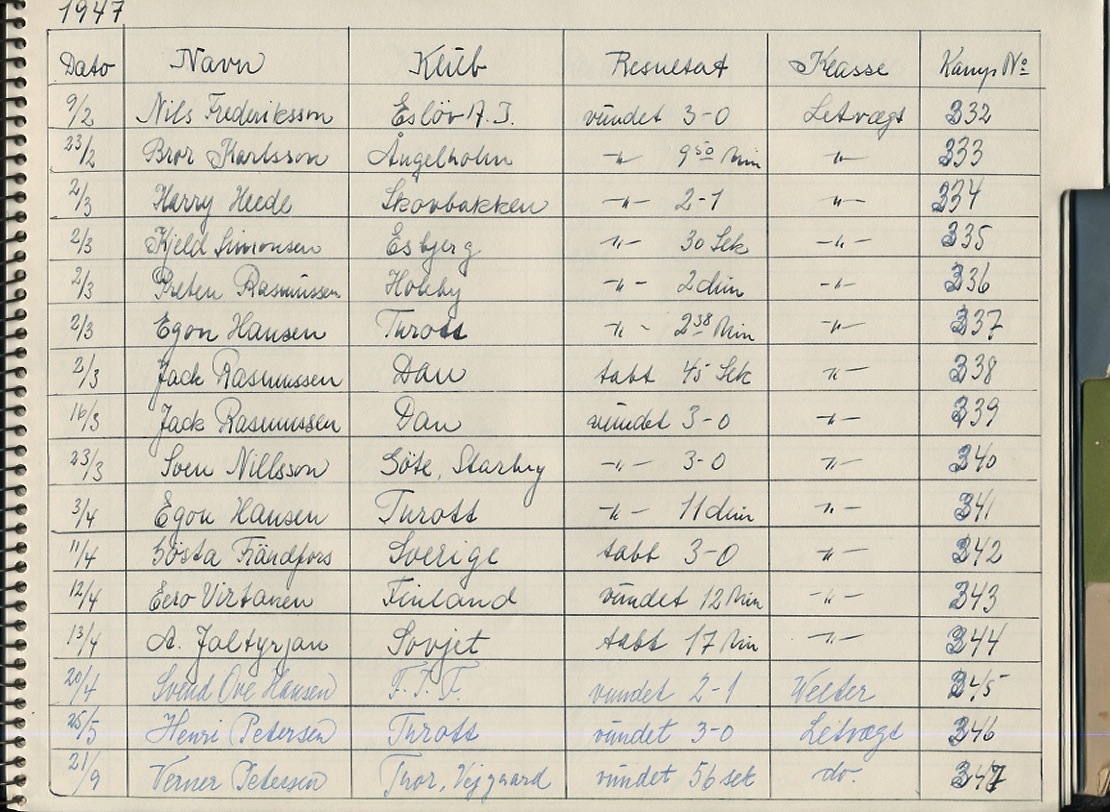 1947
Dato Navn Klub Resultat Klasse Kamp No
9/2 Nils Frederiksson Eslöv A.I. vundet 3-0 Letvægt 332
23/2 Bror Karlsson Ängelholm -"- 9 50 Min -"- 333
2/3 Harry Heede Skovbakken -"- 2-1 -"- 334
2/3 Kjeld Simonsen Esbjerg -"- 30 Sek -"- 335
2/3 Preben Rasmussen -"- 2 Min -"- 336
2/3 Egon Hansen Thrott -"- 2 38 Min -"- 337
2/3 Jack Rasmussen Dan tabt 45 Sek -"- 338
16/3 Jack Rasmussen Dan vundet 3-0 -"- 339
23/3 Sven Nillsson Göte, Starby -"- 3-0 -"- 340
3/4 Egon Hansen Thrott -"- 11 Min -"- 341
11/4 Gösta Frändfors Sverige tabt 3-0 -"- 342
12/4 Eero Virtanen Finland vundet 12 Min -"- 343
13/4 A. Jaltyrjan Sovjet tabt 17 Min -"- 344
20/4 Svend Ove Hansen F.I.F. vundet 2-1 Welter 345
25/5 Henri Petersen Thrott vundet 3-0 Letvægt 346
21/9 Verner Petersen Thor, Vejgaard vundet 56 sek do. 347